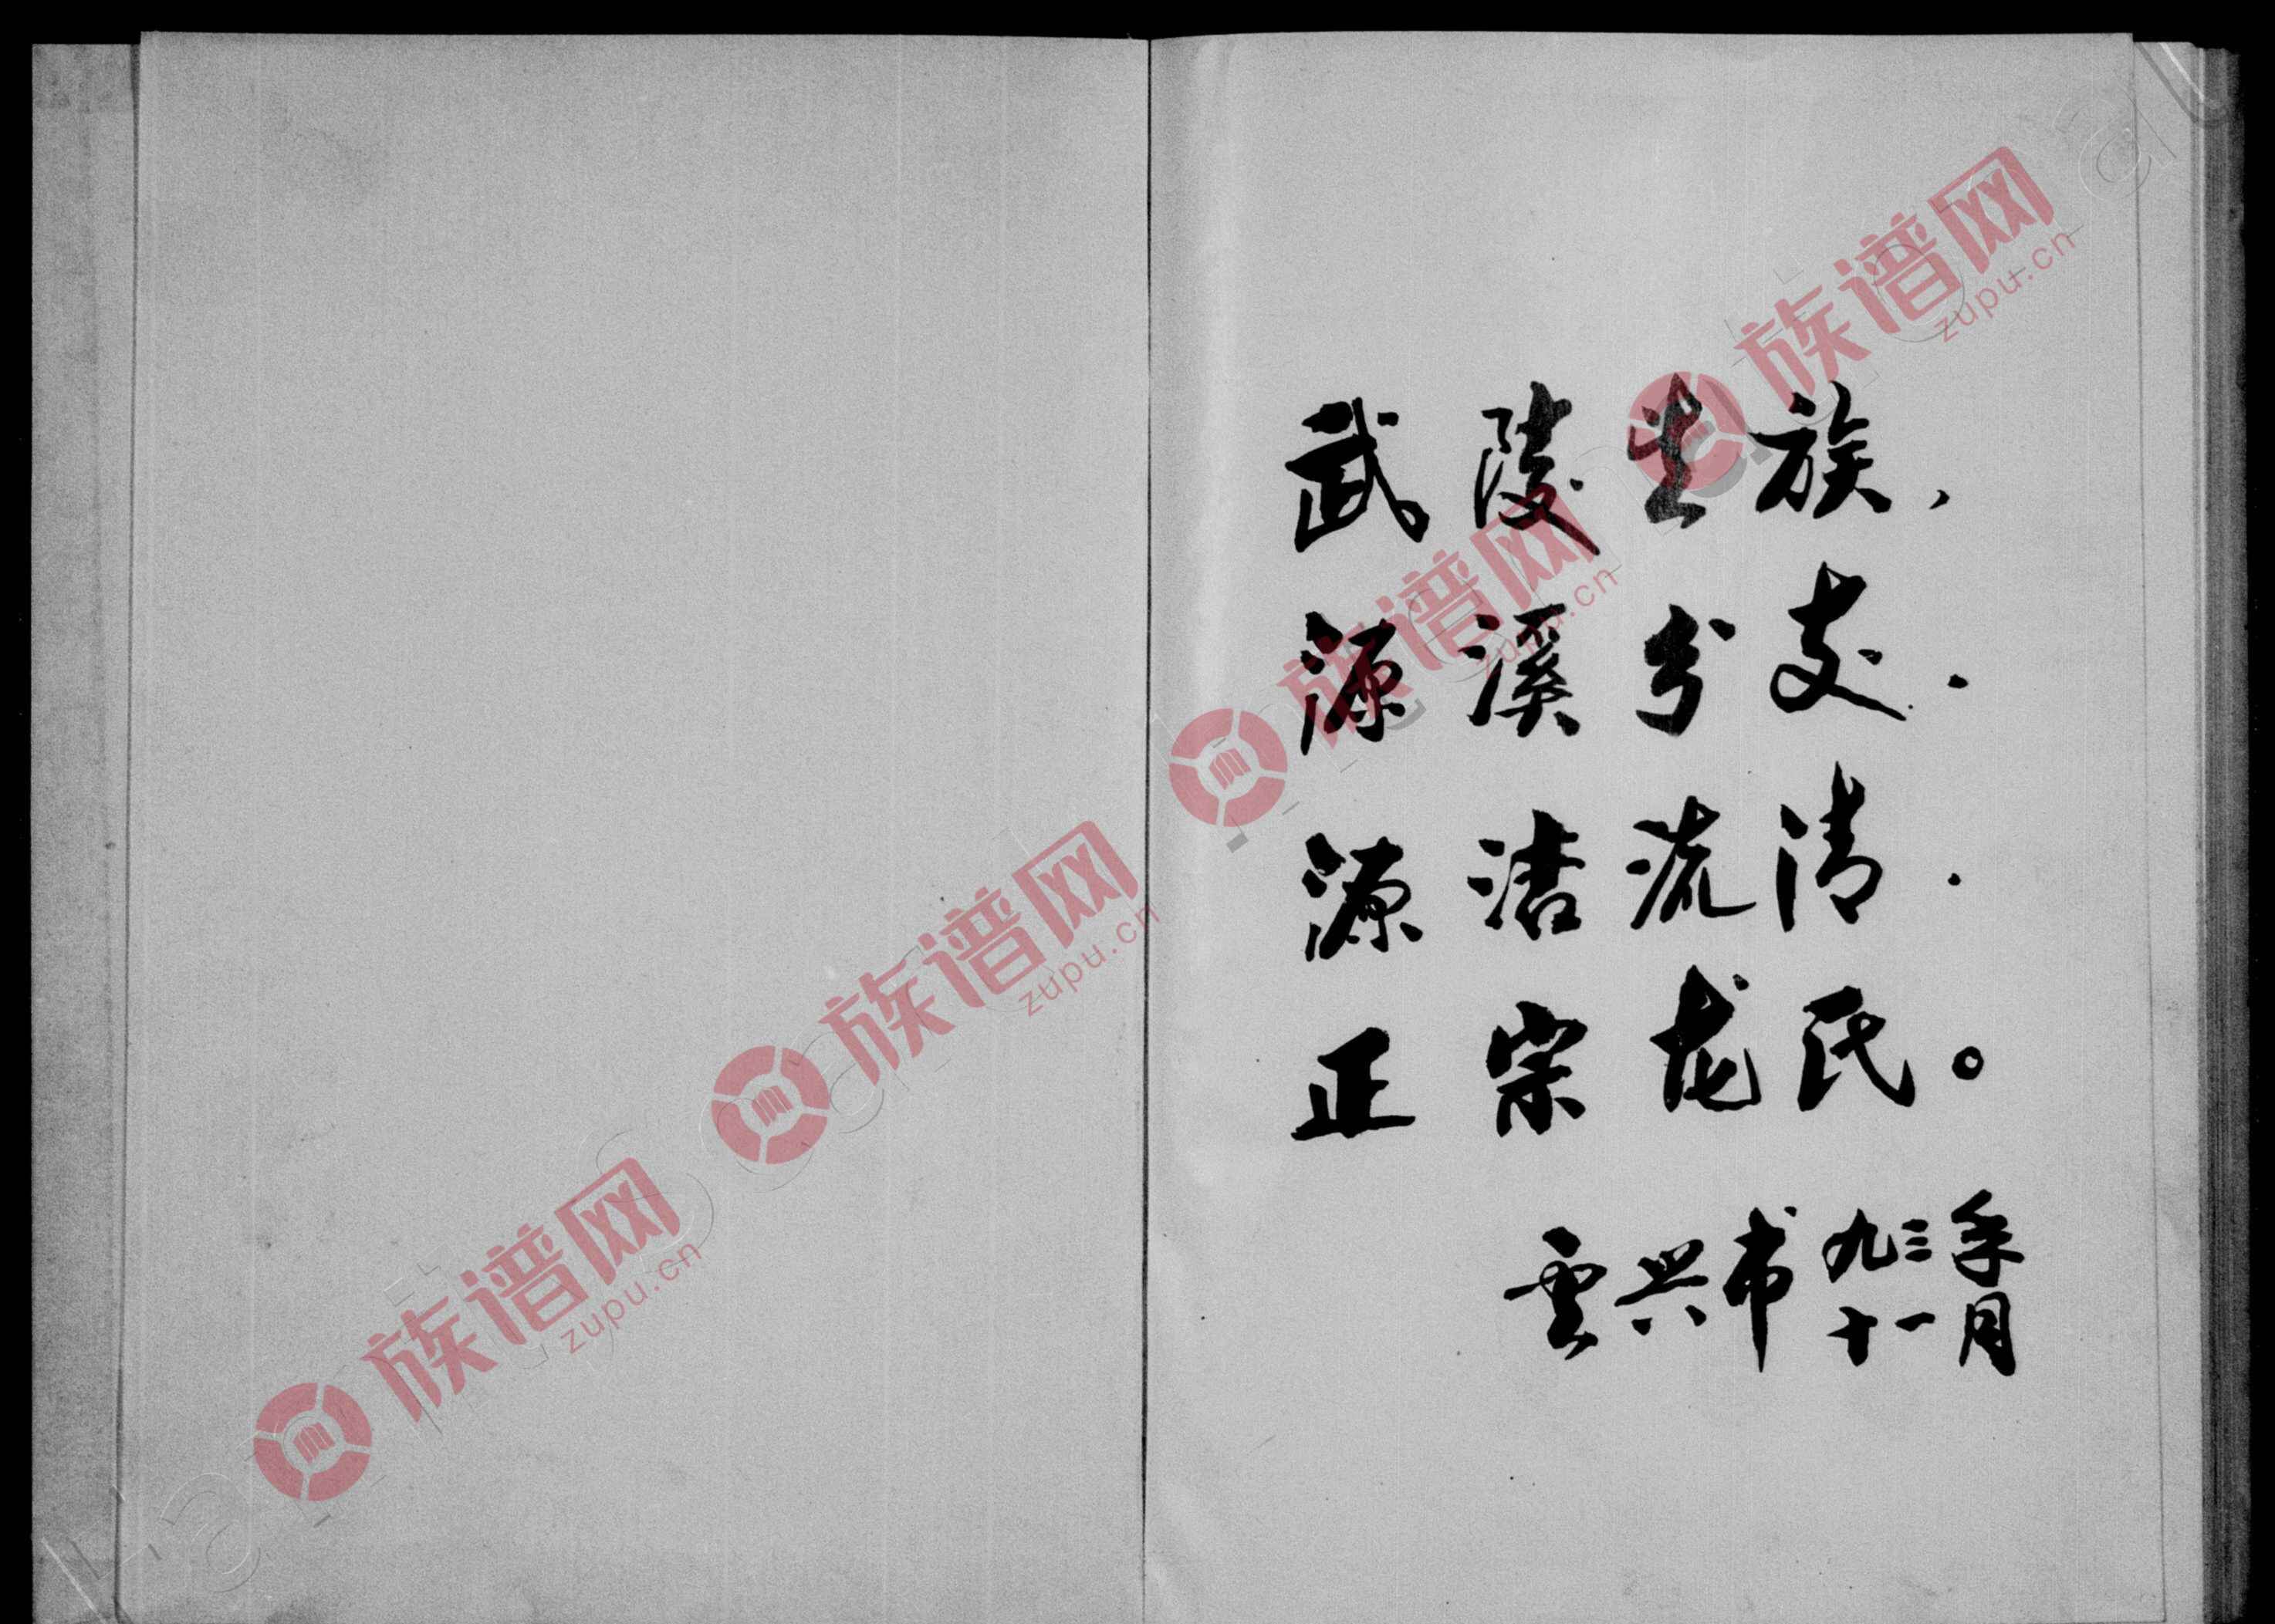 武陵族，
源溪分支．
源洁流清．
正宗龙氏。
雲兴书 九三年
十一月
族谱网
zupu.cn
族谱网
zupu.cn
族谱网
zupu.cn
族谱网
zupu.cn